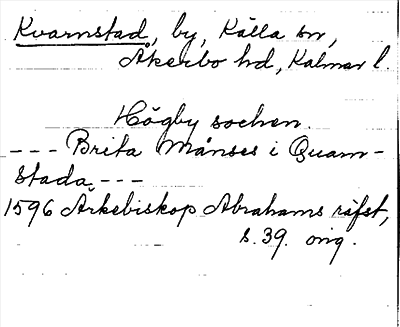 Kvarnstad, by, Källa sn,
Åkerbo hd, Kalmar l.
Högby sochen.
--- Brita Månses i Quam-
stada, ---
1596 Arkebiskop Abrahams räfst,
s. 39. orig.